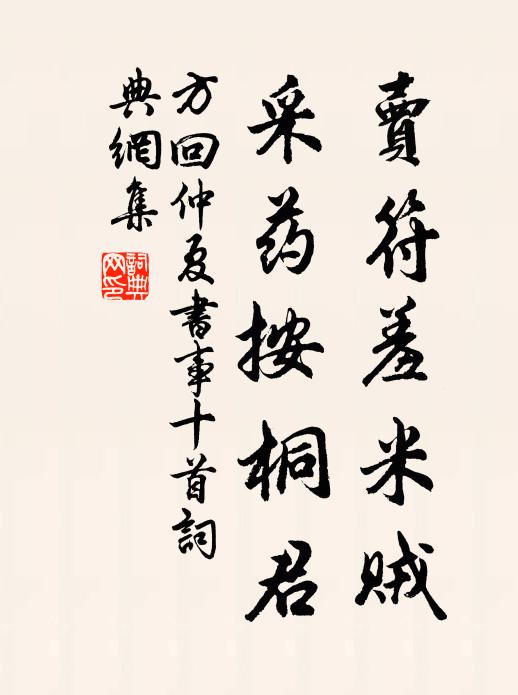 賣符羞米賊
采药按桐君
方回仲夏書事十首詞
典網集
詞典
网印